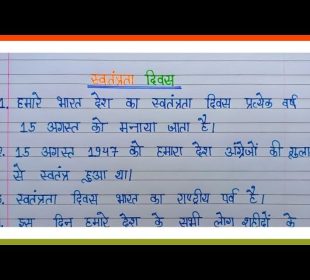 स्वतंत्रता दिवस
1. हमारे भारत देश का स्वतंत्रता दिवस प्रत्येक वर्ष
15 अगस्त को मनाया जाता है।
2. 15 अगस्त 1947 को हमारा देश अंग्रेजों की
से स्वतंत्र हुआ था।
स्वतंत्रता दिवस भारत का राष्ट्रीय पर्व है।
इस दिन हमारे देश के सभी लोग शहीदों के